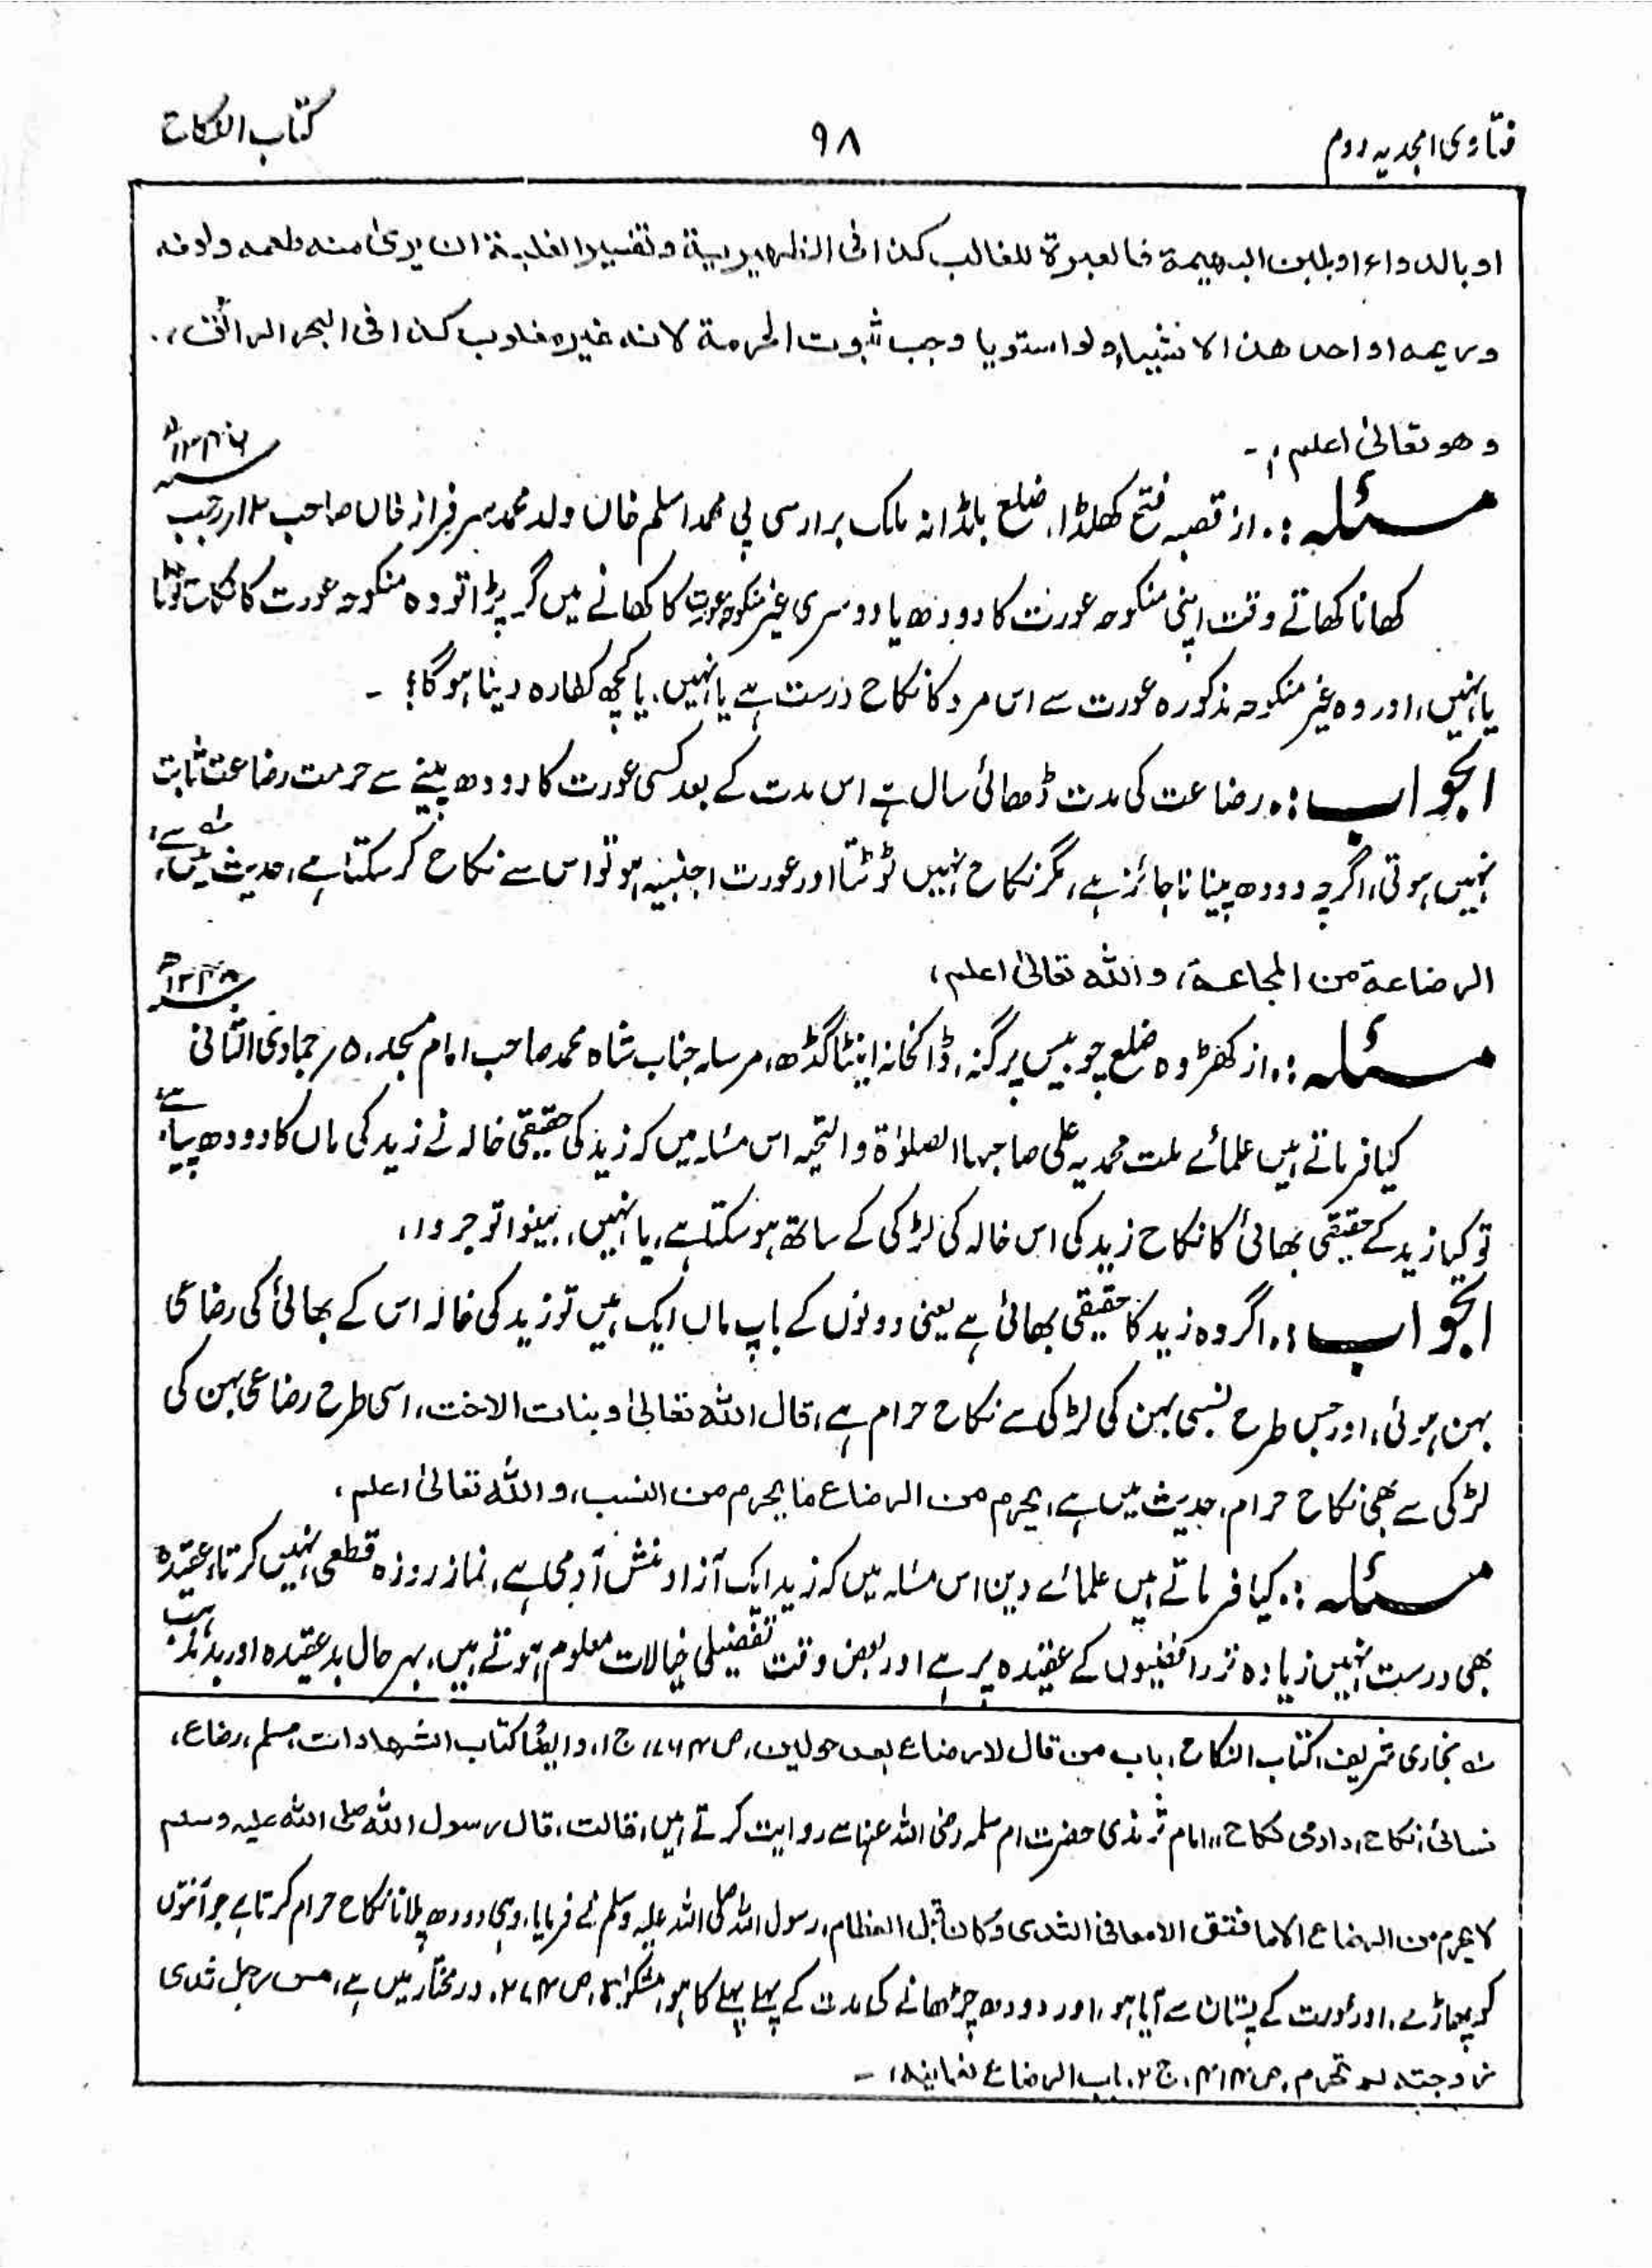 فتاوی امجدیہ دوم
۹۸
کتاب النکاح
او بالدواء او بلبن البهيمة فالعبرة للغالب كذا فى الظهيرية وتفسير الغلبة ان يرى منه طعمه ولونه
وريحه او احد هذا الاشياء ولو استويا وجب ثبوت الحرمة لانه غير مغلوب كذا فى البحر الرائق،،.
وهو تعالىٰ اعلم،۔
مسئلہ:۔ از قصبہ فتح کھلڈا، ضلع بلڈانہ ملک برار سی پی محمد اسلم خان ولد محمد سرفراز خاں صاحب ۱۲؍رجب
کھانا کھاتے وقت اپنی منکوحہ عورت کا دودھ یا دوسری غیر منکوحہ عورت کا کھانے میں گر پڑا تو وہ منکوحہ عورت کا نکاح ٹوٹا
یا نہیں، اور وہ غیر منکوحہ مذکورہ عورت سے اس مرد کا نکاح درست ہے یا نہیں۔ یا کچھ کفارہ دینا ہوگا؟ ۔
الجواب:۔ رضاعت کی مدت ڈھائی سال ہے اس مدت کے بعد کسی عورت کا دودھ پینے سے حرمت رضاعت ثابت
نہیں ہوتی، اگرچہ دودھ پینا ناجائز ہے، مگر نکاح نہیں ٹوٹتا اور عورت اجنبیہ ہو تو اس سے نکاح کرسکتا ہے، حدیث میں ہے،
الرضاعة من المجاعة، والله تعالىٰ اعلم،
مسئلہ:۔ از کھڑوہ ضلع چوبیس پرگنہ، ڈاکخانہ اینٹاگڈھ، مرسلہ جناب شاہ محمد صاحب امام مسجد، ۵؍جمادی الثانی
کیا فرماتے ہیں علمائے ملت محمدیہ علی صاحبہا الصلوٰۃ والتحیہ اس مسئلہ میں کہ زید کی حقیقی خالہ نے زید کی ماں کا دودھ پیا ہے،
تو کیا زید کے حقیقی بھائی کا نکاح زید کی اس خالہ کی لڑکی کے ساتھ ہوسکتا ہے، یا نہیں، بینوا توجروا،
الجواب:۔ اگر وہ زید کا حقیقی بھائی ہے یعنی دونوں کے باپ ماں ایک ہیں تو زید کی خالہ اس کے بھائی کی رضاعی
بہن ہوئی، اور جس طرح نسبی بہن کی لڑکی سے نکاح حرام ہے، قال الله تعالىٰ وبنات الاخت، اسی طرح رضاعی بہن کی
لڑکی سے بھی نکاح حرام، حدیث میں ہے، يحرم من الرضاع ما يحرم من النسب، والله تعالىٰ اعلم،
مسئلہ:۔ کیا فرماتے ہیں علمائے دین اس مسئلہ میں کہ زید ایک آزاد منش آدمی ہے، نماز روزہ قطعی نہیں کرتا، عقیدہ
بھی درست نہیں زیادہ تر رافضیوں کے عقیدہ پر ہے اور بعض وقت تفضیلی خیالات معلوم ہوتے ہیں، بہر حال بدعقیدہ اور بدمذہب ہے
لہ بخاری شریف، کتاب النکاح، باب من قال لا رضاع بعد حولین، ص ۷۶۴، ج ۱، وایضًا کتاب الشهادات، مسلم، رضاع،
نسائی نکاح، دارمی نکاح،، امام ترمذی حضرت ام سلمہ رضی اللہ عنہا سے روایت کرتے ہیں، قالت، قال رسول الله صلى الله عليه وسلم
لا يحرم من الرضاع الا ما فتق الامعاء فى الثدى وكان قبل الفطام، رسول اللہ صلی اللہ علیہ وسلم نے فرمایا، وہی دودھ پلانا نکاح حرام کرتا ہے جو آنتوں
کو پھاڑے، اور عورت کے پستان سے آیا ہو، اور دودھ چڑھانے کی مدت کے پہلے پہلے کا ہو، مشکوٰۃ، ص ۲۷۴، در مختار میں ہے، مص رجل ثدى
زوجته لم تحرم، ص ۴۱۴، ج ۲، باب الرضاع نعمانیہ، ۔